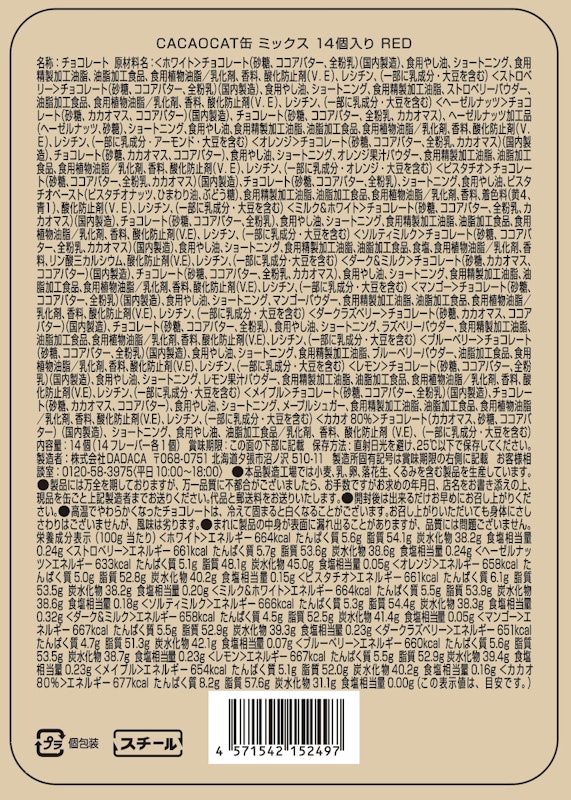 CACAOCAT缶 ミックス 14個入り RED
名称:チョコレート 原材料名:<ホワイト>チョコレート(砂糖、ココアバター、全粉乳)(国内製造)、食用やし油、ショートニング、食用
精製加工油脂、油脂加工食品、食用植物油脂/乳化剤、香料、酸化防止剤(V.E)、レシチン、(一部に乳成分・大豆を含む)<ストロベ
リー>チョコレート(砂糖、ココアバター、全粉乳)(国内製造)、食用やし油、ショートニング、食用精製加工油脂、ストロベリーパウダー、
油脂加工食品、食用植物油脂/乳化剤、香料、酸化防止剤(V.E)、レシチン、(一部に乳成分・大豆を含む)<ヘーゼルナッツ>チョコ
レート(砂糖、カカオマス、ココアバター)(国内製造)、チョコレート(砂糖、ココアバター、全粉乳、カカオマス)、ヘーゼルナッツ加工品
(ヘーゼルナッツ、砂糖)、ショートニング、食用やし油、食用精製加工油脂、油脂加工食品、食用植物油脂/乳化剤、香料、酸化防止剤(V.
E)、レシチン、(一部に乳成分・アーモンド・大豆を含む)<オレンジ>チョコレート(砂糖、ココアバター、全粉乳、カカオマス)(国内製
造)、チョコレート(砂糖、カカオマス、ココアバター)、食用やし油、ショートニング、オレンジ果汁パウダー、食用精製加工油脂、油脂加工
食品、食用植物油脂/乳化剤、香料、酸化防止剤(V.E)、レシチン、(一部に乳成分・オレンジ・大豆を含む)<ピスタチオ>チョコレー
ト(砂糖、ココアバター、全粉乳、カカオマス)(国内製造)、チョコレート(砂糖、ココアバター、全粉乳)、ショートニング、食用やし油、ピスタ
チオペースト(ピスタチオナッツ、ひまわり油、ぶどう糖)、食用精製加工油脂、油脂加工食品、食用植物油脂/乳化剤、香料、着色料(黄4、
青1)、酸化防止剤(V.E)、レシチン、(一部に乳成分・大豆を含む)<ミルク&ホワイト>チョコレート(砂糖、ココアバター、全粉乳、カ
カオマス)(国内製造)、チョコレート(砂糖、ココアバター、全粉乳)、食用やし油、ショートニング、食用精製加工油脂、油脂加工食品、食用
植物油脂/乳化剤、香料、酸化防止剤(V.E)、レシチン、(一部に乳成分・大豆を含む)<ソルティミルク>チョコレート(砂糖、ココアバ
ター、全粉乳、カカオマス)(国内製造)、食用やし油、ショートニング、食用精製加工油脂、油脂加工食品、食塩、食用植物油脂/乳化剤、香
料、リン酸三カルシウム、酸化防止剤(V.E)、レシチン、(一部に乳成分・大豆を含む)<ダーク&ミルク>チョコレート(砂糖、カカオマス、
ココアバター)(国内製造)、チョコレート(砂糖、ココアバター、全粉乳、カカオマス)、食用やし油、ショートニング、食用精製加工油脂、油
脂加工食品、食用植物油脂/乳化剤、香料、酸化防止剤(V.E)、レシチン、(一部に乳成分・大豆を含む)<マンゴー>チョコレート(砂糖、
ココアバター、全粉乳)(国内製造)、食用やし油、ショートニング、マンゴーパウダー、食用精製加工油脂、油脂加工食品、食用植物油脂/
乳化剤、香料、酸化防止剤(V.E)、レシチン、(一部に乳成分・大豆を含む)<ダークラズベリー>チョコレート(砂糖、カカオマス、ココアバ
ター)(国内製造)、チョコレート(砂糖、ココアバター、全粉乳)、食用やし油、ショートニング、ラズベリーパウダー、食用精製加工油脂、
油脂加工食品、食用植物油脂/乳化剤、香料、酸化防止剤(V.E)、レシチン、(一部に乳成分・大豆を含む)<ブルーベリー>チョコレー
ト(砂糖、ココアバター、全粉乳)(国内製造)、食用やし油、ショートニング、食用精製加工油脂、ブルーベリーパウダー、油脂加工食品、食用
植物油脂/乳化剤、香料、酸化防止剤(V.E)、レシチン、(一部に乳成分・大豆を含む)<レモン>チョコレート(砂糖、ココアバター、全粉
乳)(国内製造)、食用やし油、ショートニング、レモン果汁パウダー、食用精製加工油脂、油脂加工食品、食用植物油脂/乳化剤、香料、酸
化防止剤(V.E)、レシチン、(一部に乳成分・大豆を含む)<メイプル>チョコレート(砂糖、ココアバター、全粉乳)(国内製造)、チョコレー
ト(砂糖、カカオマス、ココアバター)、食用やし油、ショートニング、メープルシュガー、食用精製加工油脂、油脂加工食品、食用植物油脂
/乳化剤、香料、酸化防止剤(V.E)、レシチン、(一部に乳成分・大豆を含む)<カカオ80%>チョコレート(カカオマス、砂糖、ココアバ
ター)(国内製造)、ショートニング、食用やし油、油脂加工食品/乳化剤、香料、酸化防止剤(V.E)、(一部に乳成分・大豆を含む)
内容量:14個(14フレーバー各1個) 賞味期限:この面の下部に記載 保存方法:直射日光を避け、25℃以下で保存してください。
製造者:株式会社DADACA 〒068-0751 北海道夕張市沼ノ沢510-11 製造所固有記号は賞味期限の右側に記載 お客様相
談室:0120-58-3975(平日10:00〜18:00) ●本品製造工場では小麦、乳、卵、落花生、くるみを含む製品を生産しています。
●製品には万全を期しておりますが、万一品質に不都合がございましたら、お手数ですがお求めの年月日、店名をお書き添えの上、
現品を缶ごと上記製造者までお送りください。代品と郵送料をお送りいたします。●開封後は出来るだけお早めにお召し上がりくだ
さい。●高温でやわらかくなったチョコレートは、冷えて固まると白くなることがございます。お召し上がりいただいても身体にさし
さわりはございませんが、風味は劣ります。●まれに製品の中身が表面に漏れ出ることがありますが、品質には問題ございません。
栄養成分表示(100g当たり)<ホワイト>エネルギー 664kcal たんぱく質 5.6g 脂質 54.1g 炭水化物 38.2g 食塩相当量
0.24g<ストロベリー>エネルギー 661kcal たんぱく質 5.7g 脂質 53.6g 炭水化物 38.6g 食塩相当量 0.24g<ヘーゼルナッ
ツ>エネルギー 633kcal たんぱく質 5.1g 脂質 48.1g 炭水化物 45.0g 食塩相当量 0.05g<オレンジ>エネルギー 658kcal た
んぱく質 5.0g 脂質 52.8g 炭水化物 40.2g 食塩相当量 0.15g<ピスタチオ>エネルギー 661kcal たんぱく質 6.1g 脂質
53.5g 炭水化物 38.2g 食塩相当量 0.20g<ミルク&ホワイト>エネルギー 664kcal たんぱく質 5.5g 脂質 53.9g 炭水化物
38.6g 食塩相当量 0.18g<ソルティミルク>エネルギー 666kcal たんぱく質 5.3g 脂質 54.4g 炭水化物 38.3g 食塩相当量
0.32g<ダーク&ミルク>エネルギー 658kcal たんぱく質 4.5g 脂質 52.5g 炭水化物 41.4g 食塩相当量 0.05g<マンゴー>エ
ネルギー 667kcal たんぱく質 5.5g 脂質 52.9g 炭水化物 39.3g 食塩相当量 0.23g<ダークラズベリー>エネルギー 651kcal
たんぱく質 4.7g 脂質 51.3g 炭水化物 42.1g 食塩相当量 0.07g<ブルーベリー>エネルギー 660kcal たんぱく質 5.6g 脂質
53.5g 炭水化物 38.7g 食塩相当量 0.23g<レモン>エネルギー 667kcal たんぱく質 5.5g 脂質 52.9g 炭水化物 39.4g 食塩
相当量 0.23g<メイプル>エネルギー 654kcal たんぱく質 5.1g 脂質 52.0g 炭水化物 40.2g 食塩相当量 0.16g<カカオ
80%>エネルギー 677kcal たんぱく質 8.2g 脂質 57.6g 炭水化物 31.1g 食塩相当量 0.00g(この表示値は、目安です。)
プラ 個包装 スチール
4 571542 152497